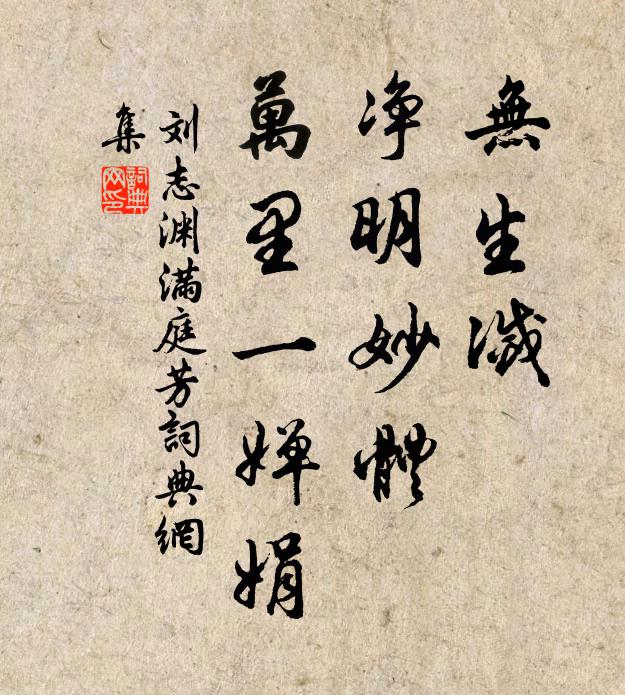 無生滅
净明妙體
萬里一嬋娟
刘志渊滿庭芳詞典網
集
詞典
网印